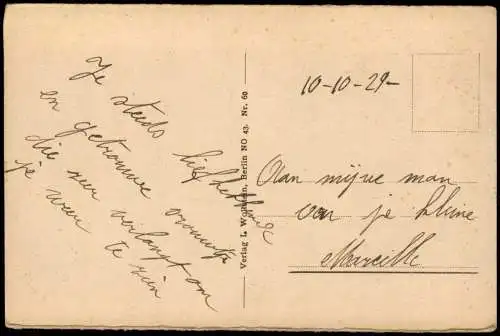 Je steeds liefhebbende
en getrouwe vrouwtje
die zeer verlangt om
je weer te zien
Verlag L. Wolfstein, Berlin NO 43. Nr. 60
10-10-29-
Aan mijne man
van je kleine
Marcelle